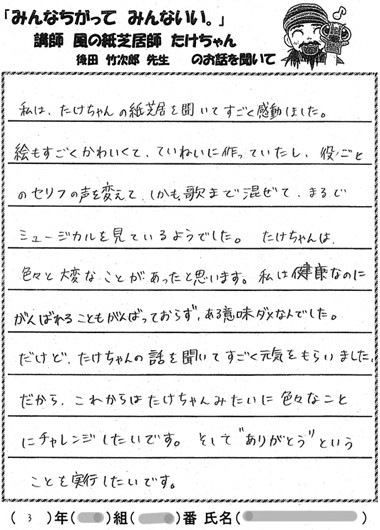 「みんなちがって みんないい。」
講師 風の紙芝居師 たけちゃん
後田 竹次郎 先生 のお話を聞いて
私は、たけちゃんの紙芝居を聞いてすごく感動しました。
絵もすごくかわいくて、ていねいに作っていたし、役ごと
のセリフの声を変えて、しかも、歌まで混ぜて、まるで
ミュージカルを見ているようでした。 たけちゃんは、
色々と大変なことがあったと思います。私は健康なのに
がんばれることもがんばっておらず、ある意味ダメなんでした。
だけど、たけちゃんの話を聞いてすごく元気をもらいました。
だから、これからはたけちゃんみたいに色々なこと
にチャレンジしたいです。 そして"ありがとう"という
ことを実行したいです。
( 3 )年( )組( )番 氏名( )